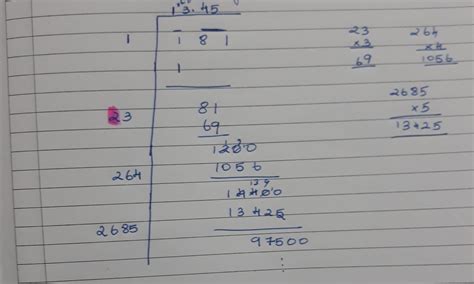 13.45
1 1 81
1
23 81
69
1200
264 1056
14400
13425
2685 97500
⋮
23
x3
69
264
x4
1056
2685
x5
13425